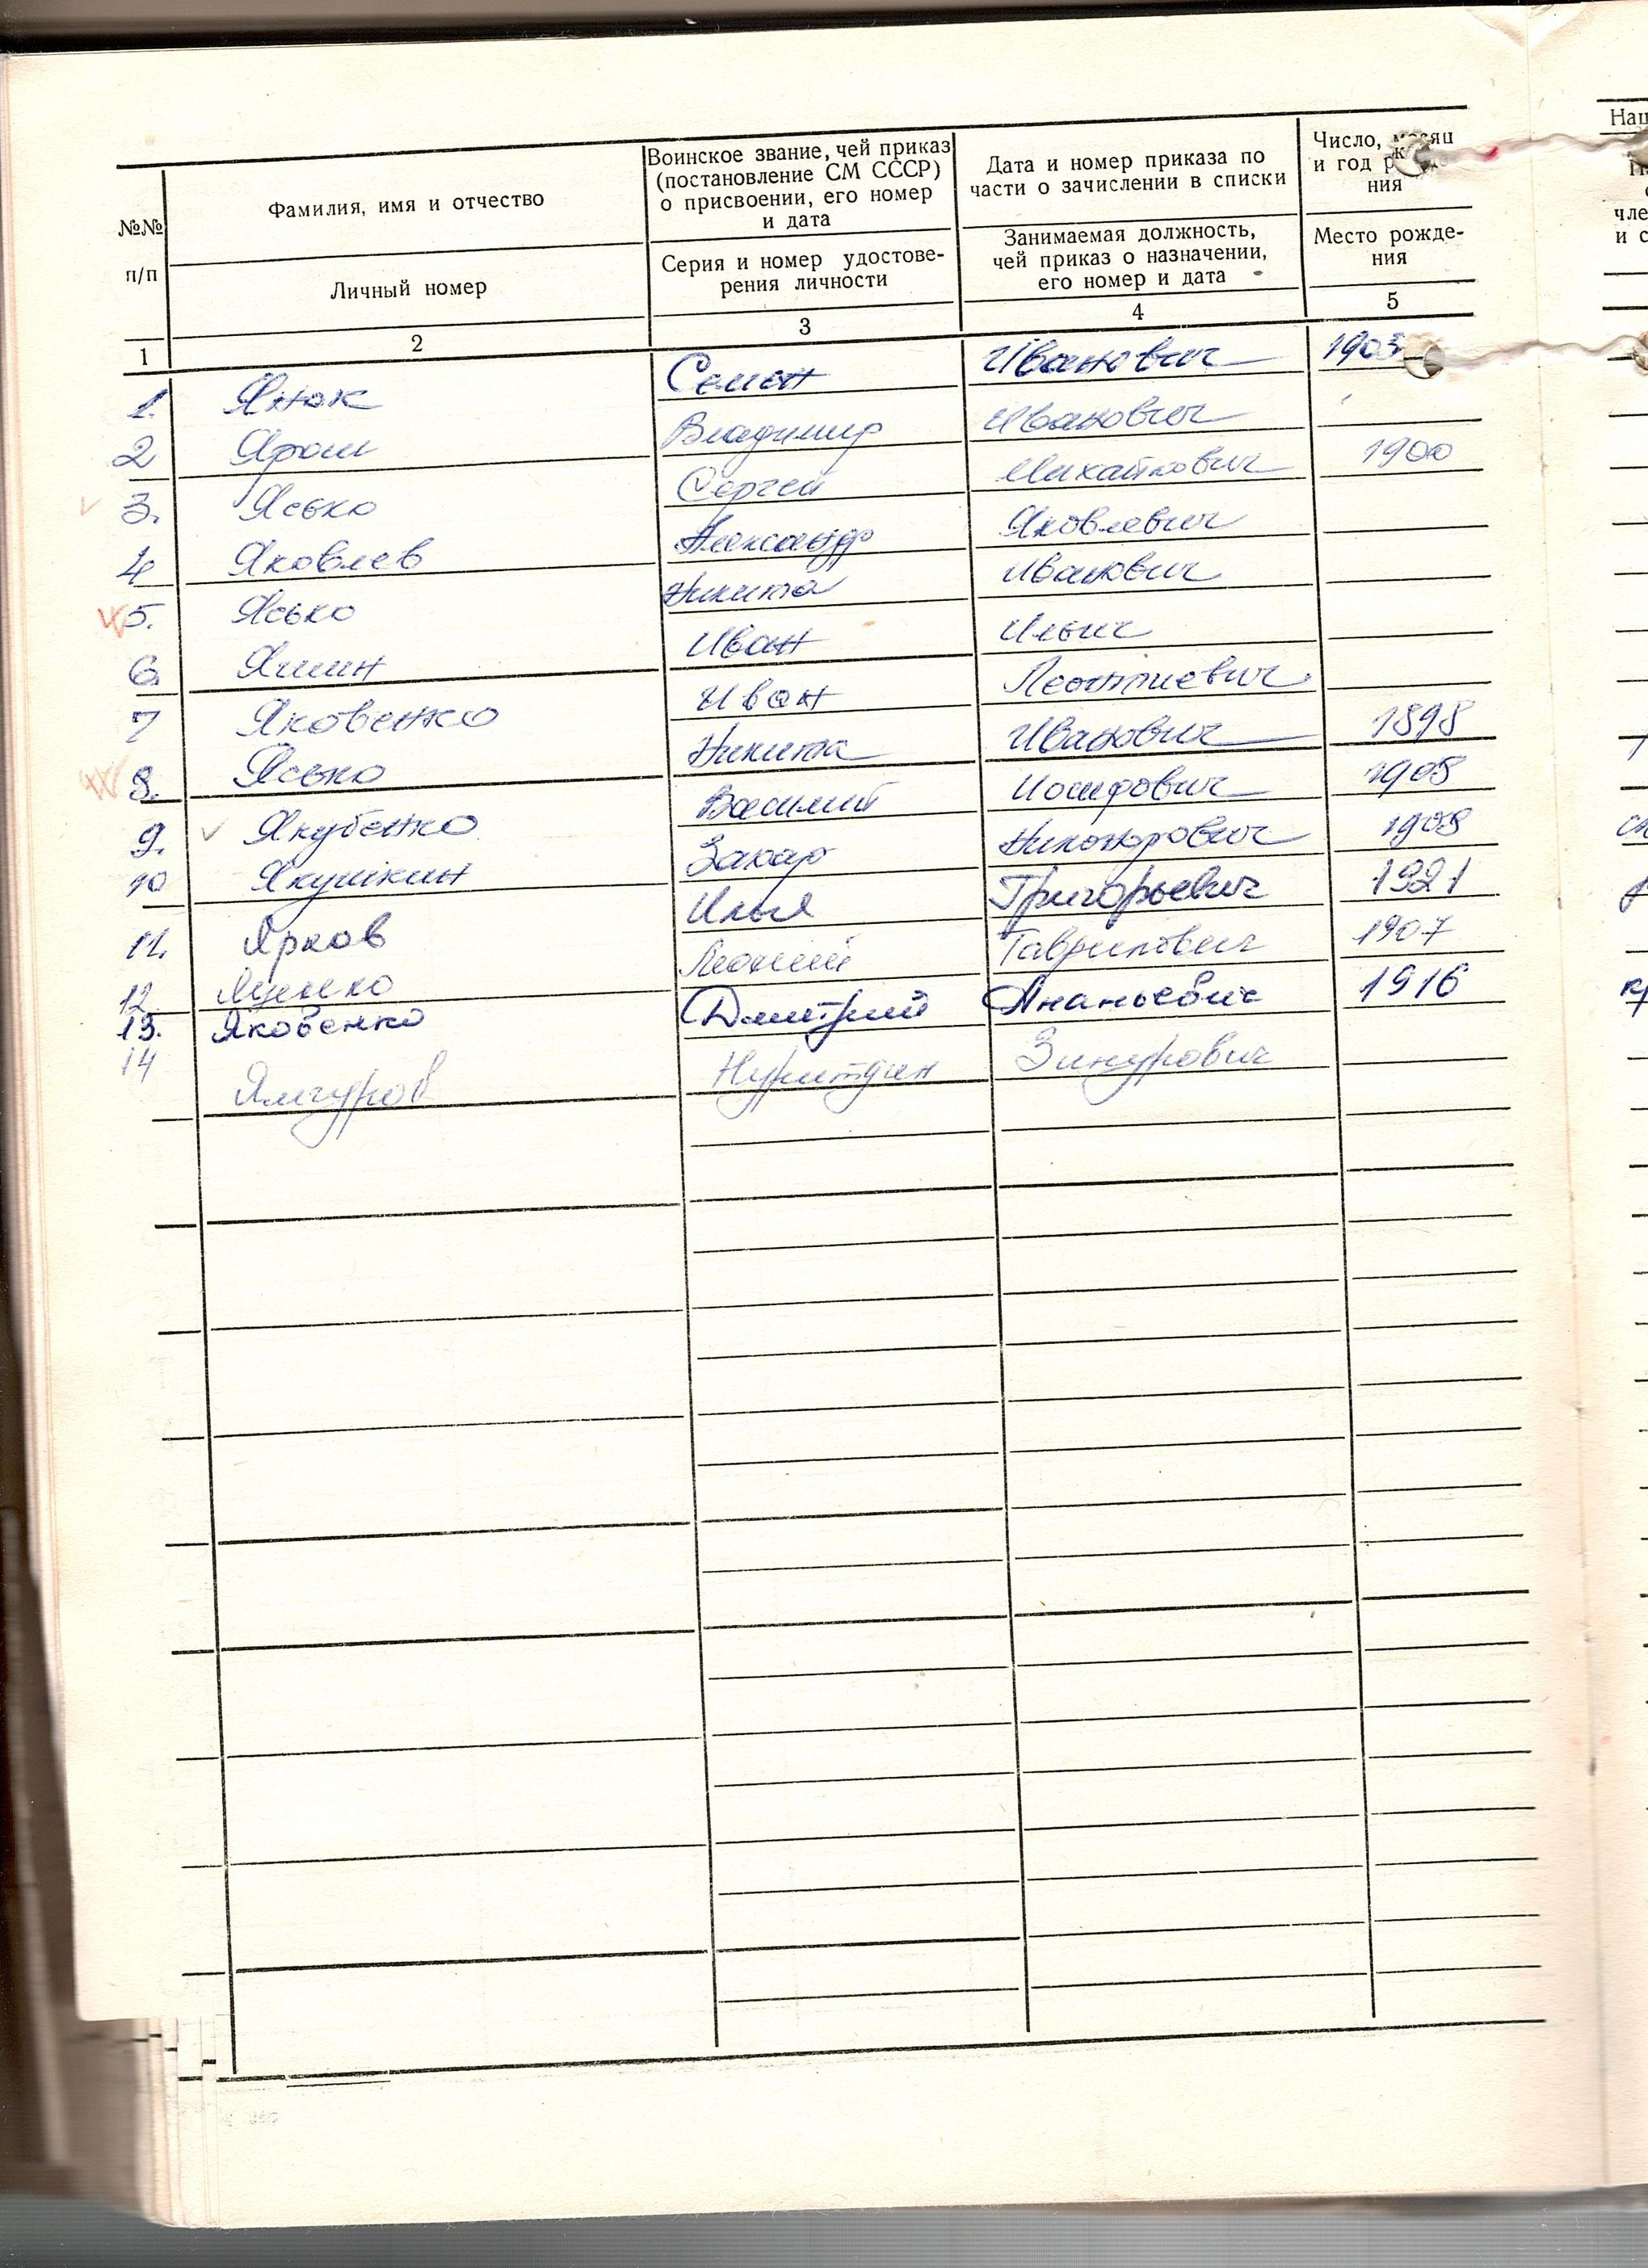 №№ п/п
Фамилия, имя и отчество
Личный номер
Воинское звание, чей приказ
(постановление СМ СССР)
о присвоении, его номер
и дата
Серия и номер удостове-
рения личности
Дата и номер приказа по
части о зачислении в списки
Занимаемая должность,
чей приказ о назначении,
его номер и дата
Число,
и год
ния
Место рожде-
ния
1 2 3 4 5
1. Янок Семен Иванович 1903
2 Ярош Владимир Иванович
3. Ясько Сергей Михайлович 1900
4 Яковлев Александр Яковлевич
5. Ясько Никита Иванович
6. Яшин Иван Ильич
7 Яковенко Иван Леонтиевич
8. Ясько Никита Иванович 1898
9. Якубенко Василий Иосифович 1905
10 Якушкин Захар Никонорович 1908
11. Ярков Илья Григорьевич 1921
12. Гаврилович 1907
13. Яковенко Дмитрий Ананьевич 1916
14 Ямгуров Нуритдин Зинурович
Нац
чле
и с